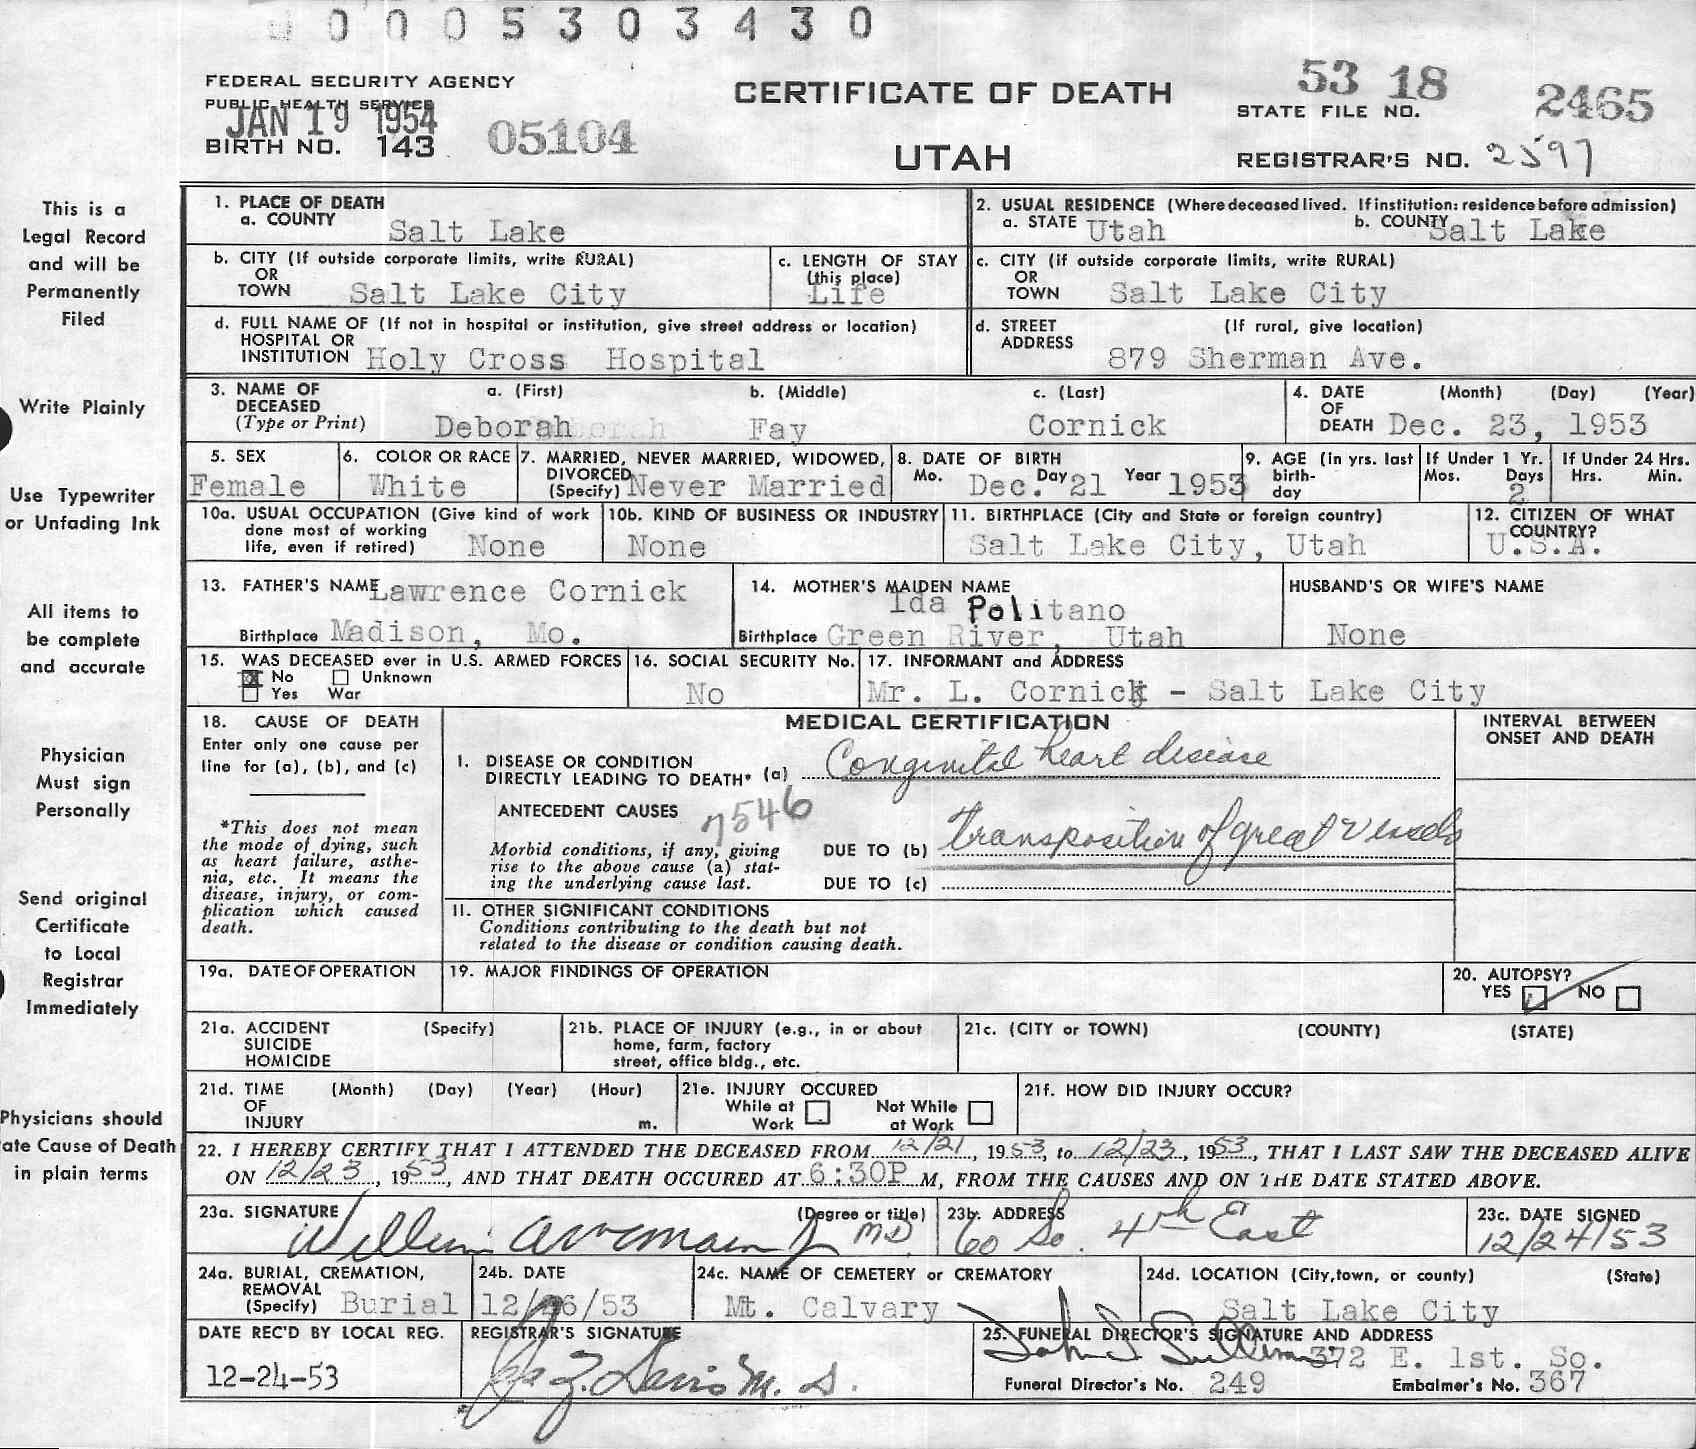 0005303430
FEDERAL SECURITY AGENCY
PUBLIC HEALTH SERVICE
JAN 19 1954
BIRTH NO. 143 05104
CERTIFICATE OF DEATH
UTAH
53 18 2465
STATE FILE NO.
REGISTRAR'S NO. 2597
This is a
Legal Record
and will be
Permanently
Filed
Write Plainly
Use Typewriter
or Unfading Ink
All items to
be complete
and accurate
Physician
Must sign
Personally
Send original
Certificate
to Local
Registrar
Immediately
Physicians should
ate Cause of Death
in plain terms
1. PLACE OF DEATH
a. COUNTY Salt Lake
2. USUAL RESIDENCE (Where deceased lived. If institution: residence before admission)
a. STATE Utah b. COUNTY Salt Lake
b. CITY (If outside corporate limits, write RURAL)
OR
TOWN Salt Lake City
c. LENGTH OF STAY
(this place)
Life
c. CITY (if outside corporate limits, write RURAL)
OR
TOWN Salt Lake City
d. FULL NAME OF (If not in hospital or institution, give street address or location)
HOSPITAL OR
INSTITUTION Holy Cross Hospital
d. STREET (If rural, give location)
ADDRESS 879 Sherman Ave.
3. NAME OF a. (First) b. (Middle) c. (Last)
DECEASED
(Type or Print) Deborah Fay Cornick
4. DATE (Month) (Day) (Year)
OF
DEATH Dec. 23, 1953
5. SEX
Female
6. COLOR OR RACE
White
7. MARRIED, NEVER MARRIED, WIDOWED,
DIVORCED
(Specify) Never Married
8. DATE OF BIRTH
Mo. Dec. Day 21 Year 1953
9. AGE (in yrs. last
birth-
day
If Under 1 Yr.
Mos. Days
2
If Under 24 Hrs.
Hrs. Min.
10a. USUAL OCCUPATION (Give kind of work
done most of working
life, even if retired) None
10b. KIND OF BUSINESS OR INDUSTRY
None
11. BIRTHPLACE (City and State or foreign country)
Salt Lake City, Utah
12. CITIZEN OF WHAT
COUNTRY?
U.S.A.
13. FATHER'S NAME Lawrence Cornick
Birthplace Madison, Mo.
14. MOTHER'S MAIDEN NAME
Ida Politano
Birthplace Green River, Utah
HUSBAND'S OR WIFE'S NAME
None
15. WAS DECEASED ever in U.S. ARMED FORCES
No Unknown
Yes War
16. SOCIAL SECURITY No.
No
17. INFORMANT and ADDRESS
Mr. L. Cornick - Salt Lake City
18. CAUSE OF DEATH
Enter only one cause per
line for (a), (b), and (c)
*This does not mean
the mode of dying, such
as heart failure, asthe-
nia, etc. It means the
disease, injury, or com-
plication which caused
death.
MEDICAL CERTIFICATION
INTERVAL BETWEEN
ONSET AND DEATH
I. DISEASE OR CONDITION
DIRECTLY LEADING TO DEATH* (a) Congenital heart disease
ANTECEDENT CAUSES 7546
Morbid conditions, if any, giving
rise to the above cause (a) stat-
ing the underlying cause last.
DUE TO (b) transposition of great vessels
DUE TO (c)
11. OTHER SIGNIFICANT CONDITIONS
Conditions contributing to the death but not
related to the disease or condition causing death.
19a. DATE OF OPERATION
19. MAJOR FINDINGS OF OPERATION
20. AUTOPSY?
YES NO
21a. ACCIDENT (Specify)
SUICIDE
HOMICIDE
21b. PLACE OF INJURY (e.g., in or about
home, farm, factory
street, office bldg., etc.
21c. (CITY or TOWN) (COUNTY) (STATE)
21d. TIME (Month) (Day) (Year) (Hour)
OF
INJURY m.
21e. INJURY OCCURED
While at Work Not While at Work
21f. HOW DID INJURY OCCUR?
22. I HEREBY CERTIFY THAT I ATTENDED THE DECEASED FROM 12/21, 1953, to 12/23, 1953, THAT I LAST SAW THE DECEASED ALIVE
ON 12/23, 1953, AND THAT DEATH OCCURED AT 6:30P M, FROM THE CAUSES AND ON THE DATE STATED ABOVE.
23a. SIGNATURE (Degree or title)
MD
23b. ADDRESS
60 So. 4th East
23c. DATE SIGNED
12/24/53
24a. BURIAL, CREMATION,
REMOVAL
(Specify) Burial
24b. DATE
12/26/53
24c. NAME OF CEMETERY or CREMATORY
Mt. Calvary
24d. LOCATION (City, town, or county) (State)
Salt Lake City
DATE REC'D BY LOCAL REG.
12-24-53
REGISTRAR'S SIGNATURE
M. D.
25. FUNERAL DIRECTOR'S SIGNATURE AND ADDRESS
372 E. 1st. So.
Funeral Director's No. 249 Embalmer's No. 367